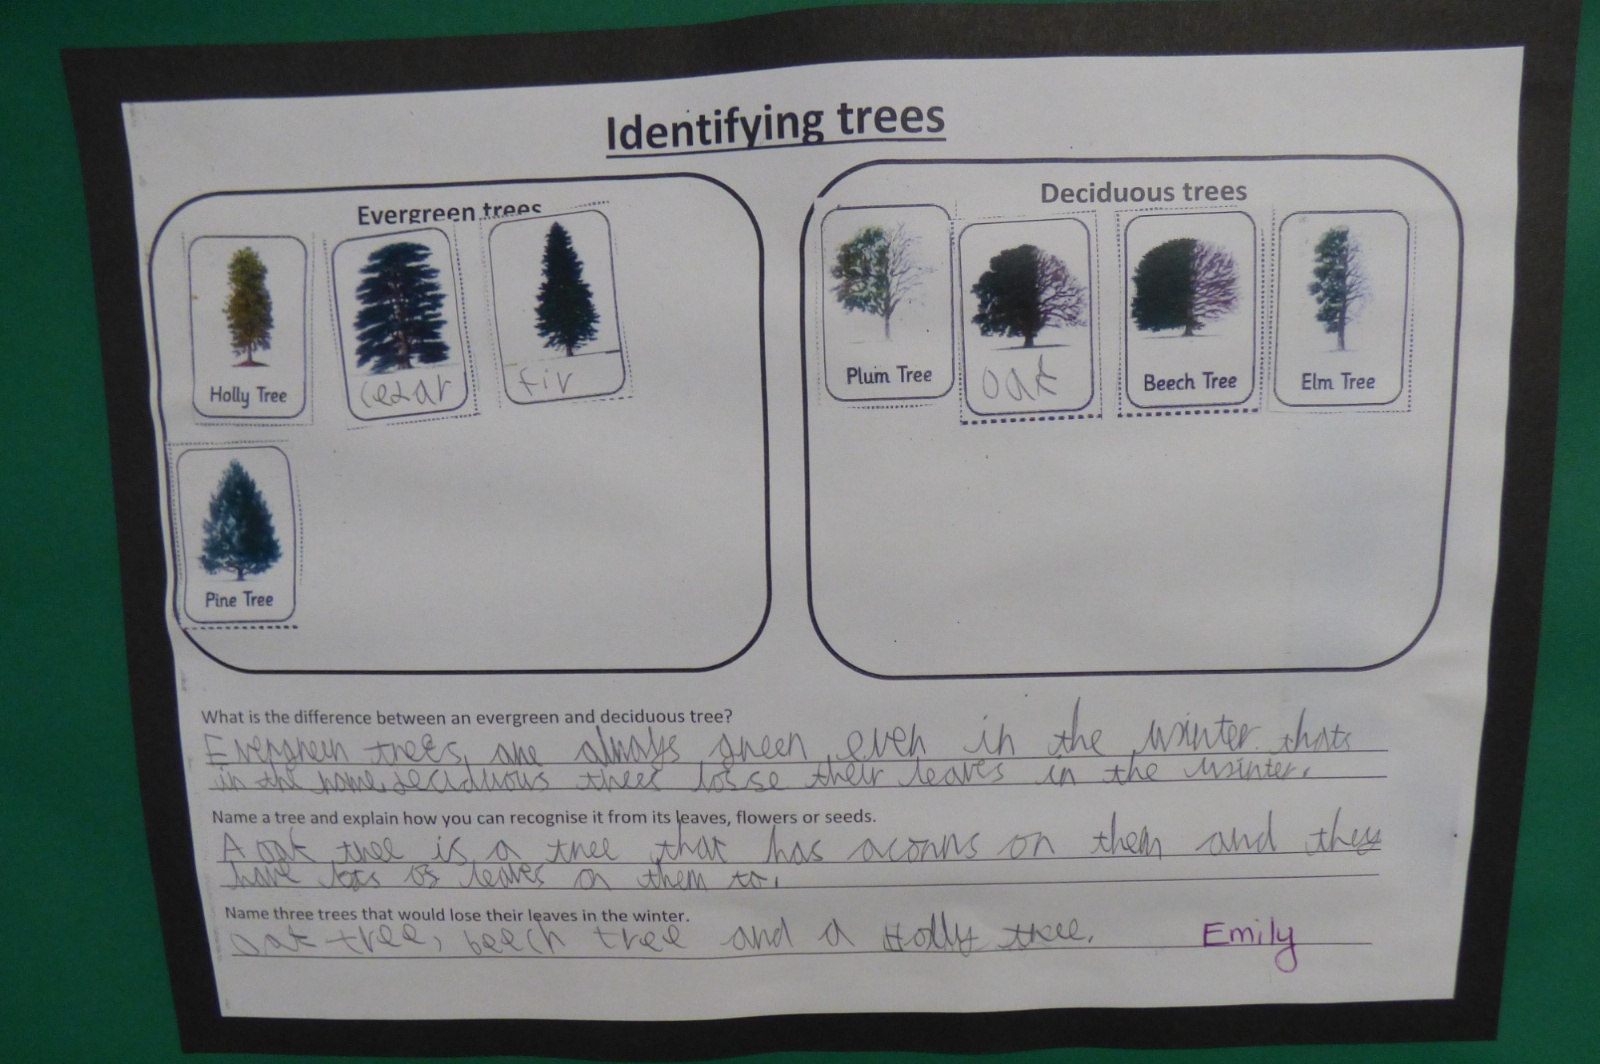 Identifying trees
Evergreen trees
Deciduous trees
Holly Tree
cedar
fir
Pine Tree
Plum Tree
oak
Beech Tree
Elm Tree
What is the difference between an evergreen and deciduous tree?
Evergreen trees are always green even in the winter thats
in the name. deciduous trees losse their leaves in the winter.
Name a tree and explain how you can recognise it from its leaves, flowers or seeds.
A oak tree is a tree that has acorns on them and they
have lots of leaves on them to.
Name three trees that would lose their leaves in the winter.
oak tree, beech tree and a Holly tree.
Emily